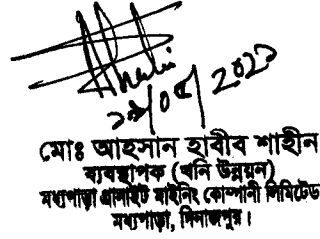 মোঃ আহসান হাবীব শাহীন
ব্যবস্থাপক (খনি উন্নয়ন)
মধ্যপাড়া গ্রানাইট মাইনিং কোম্পানী লিমিটেড
মধ্যপাড়া, দিনাজপুর।